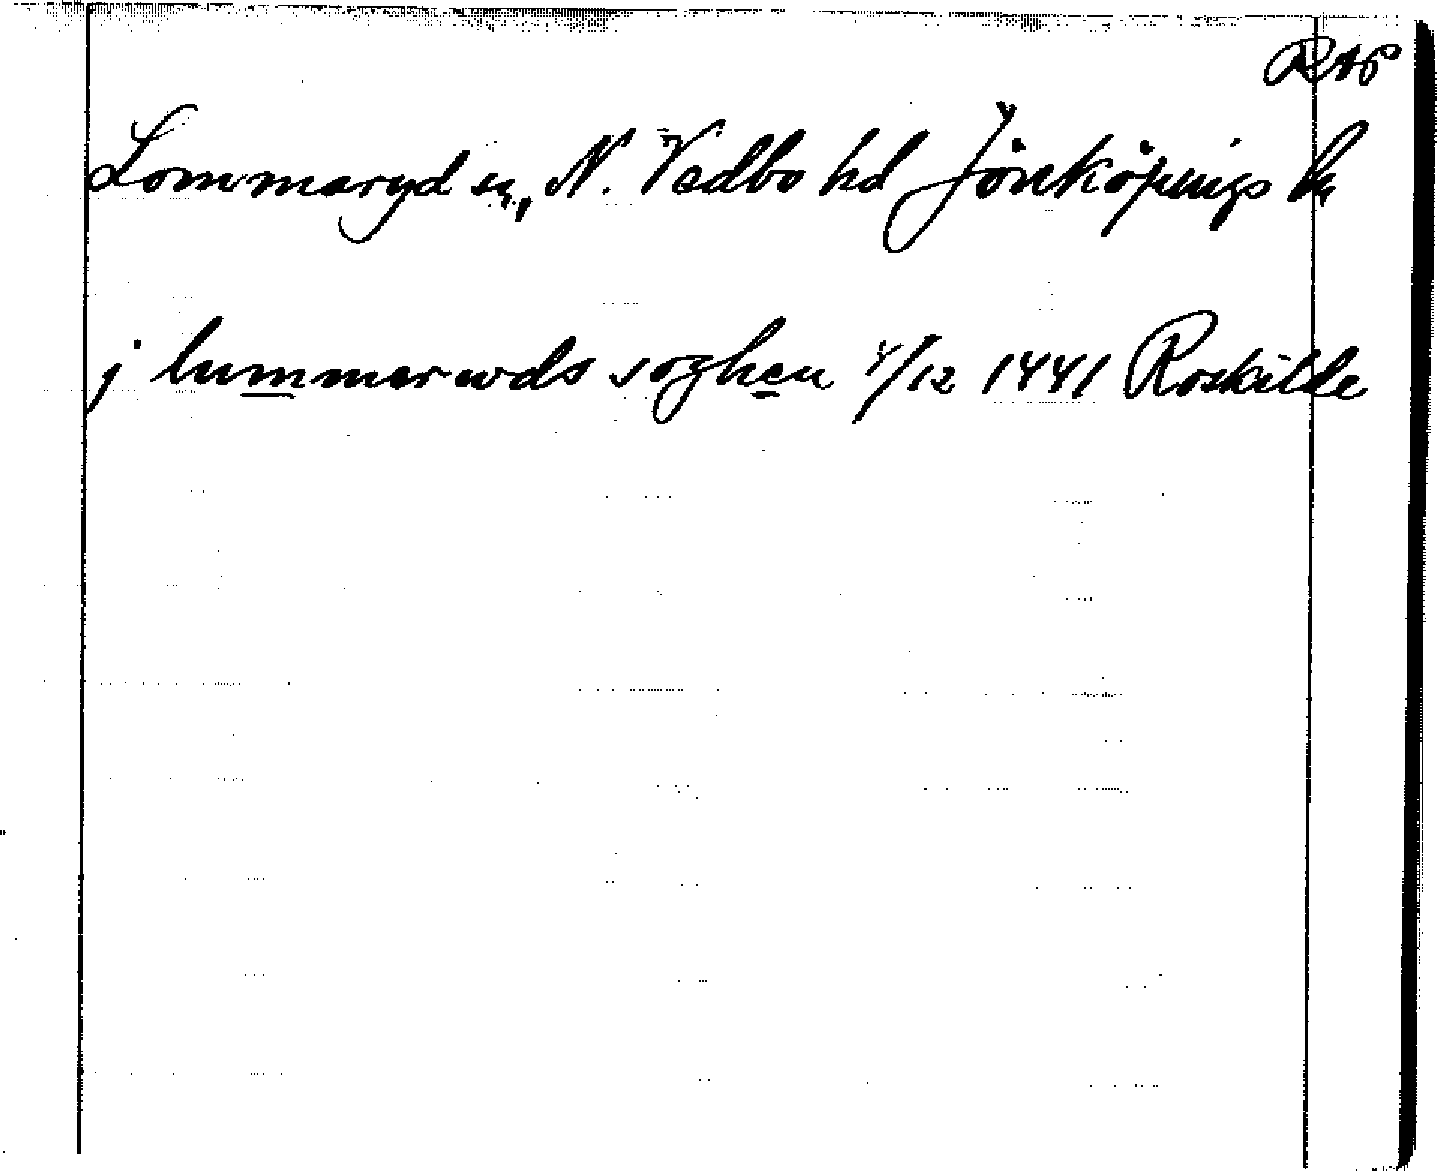 RAP
Lommaryd sn, N. Vedbo hd Jönköpings ln
j lummarwds soghen 4/12 1441 Roskilde